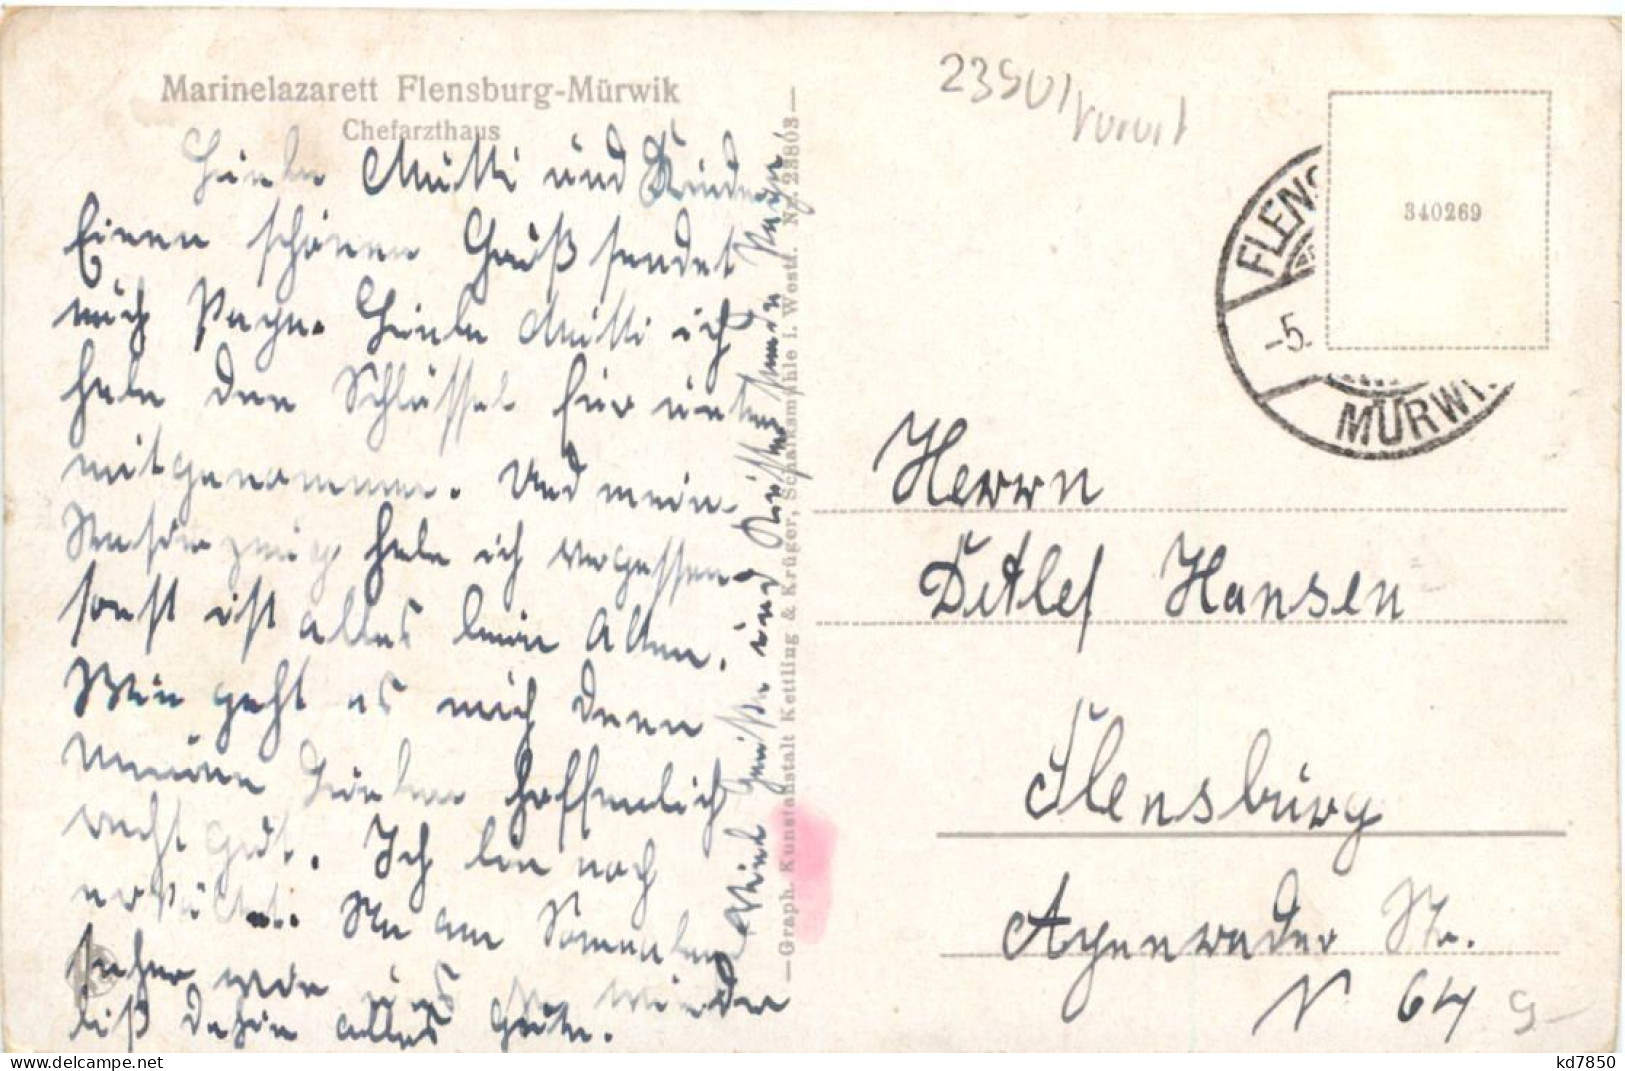 Marinelazarett Flensburg-Mürwik
Chefarzthaus
Liebe Mutti und Kinder
Einen schönen Gruß sendet
euch Papa. Liebe Mutti ich
habe den Schlüssel für unten
mitgenommen. Und mein
Rasierzeug habe ich vergessen
sonst ist alles beim Alten.
Wie geht es euch denn
meine Lieben hoffentlich
recht gut. Ich bin noch
erkältet. Na am Sonnabend
sehen wir uns ja wieder
bis dahin alles Gute.
Viel Grüße und Küsse sendet Papa
—Graph. Kunstanstalt Kettling & Krüger, Schalksmühle i. Westf. Nr. 23803—
23901
340269
FLENS
-5.
MÜRWI
Herrn
Detlef Hansen
Flensburg
Apenrader Str.
N 64
9-
kd7850